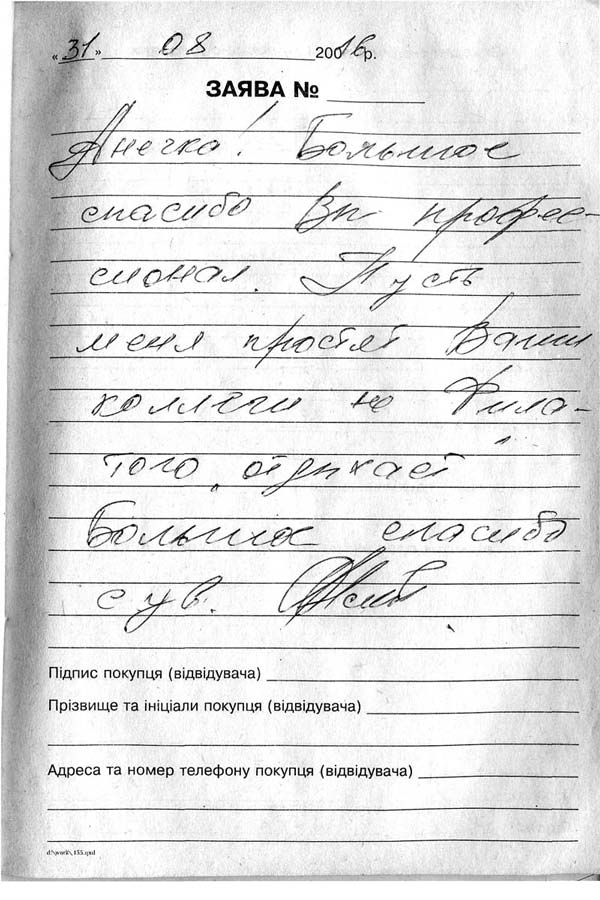 «31» 08 2001 16 р.
ЗАЯВА №
Анечка! Большое
спасибо Вы профес-
сионал. Пусть
меня простят Ваши
коллеги но "Фила-
това" отдыхает
Большое спасибо
с ув.
Підпис покупця (відвідувача)
Прізвище та ініціали покупця (відвідувача)
Адреса та номер телефону покупця (відвідувача)